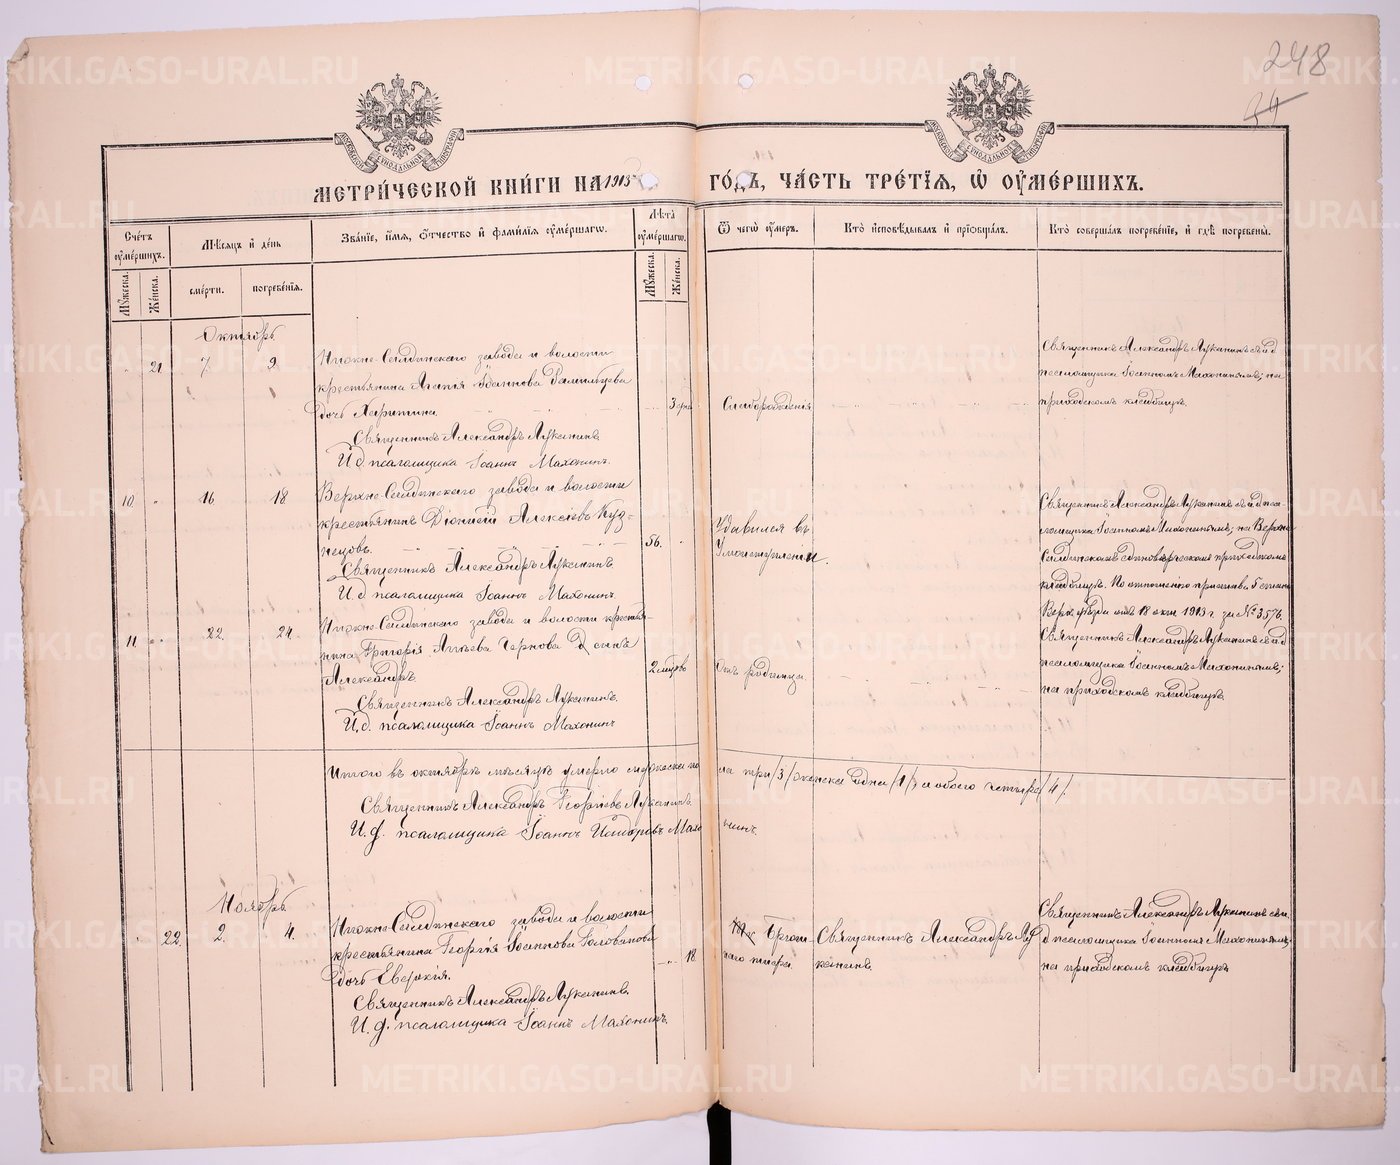 248
34
МЕТРИ́ЧЕСКОЙ КНИ́ГИ НА 1913 ГО́ДЪ, ЧА́СТЬ ТРЕ́ТІѦ, Ѡ҆ ОУ҆МЕ́РШИХЪ.
Сче́тъ оу҆ме́ршихъ.
Мꙋ́жеска.
Же́нска.
Мѣ́сѧцъ и҆ де́нь
сме́рти.
погребе́нїѧ.
Зва́нїе, и҆́мѧ, ѻ҆́тчество и҆ фами́лїѧ оу҆ме́ршагѡ.
Лѣ́та оу҆ме́ршагѡ.
Мꙋ́жеска.
Же́нска.
Ѿ чегѡ̀ оу҆́меръ.
Кто̀ и҆сповѣ́дывалъ и҆ прїѡбща́лъ.
Кто̀ соверша́лъ погребе́нїе, и҆ гдѣ̀ погребены̀.
Октябрь
21. 7. 9.
Нижне-Салдинскаго завода и волости
крестьянина Агапія Іоаннова
дочь Харитина
Священникъ Александръ Лукинъ
И.д. псаломщика Іоаннъ Махонинъ.
3 дня
Слаборожденія
Священникъ Александръ Лукинъ съ и д
псаломщика Іоанномъ Махонинымъ; на
приходскомъ кладбищѣ.
10. 16. 18.
Верхне-Салдинскаго завода и волости
крестьянинъ Діонисій Алексѣевъ Куз-
нецовъ.
Священникъ Александръ Лукинъ
И.д псаломщика Іоаннъ Махонинъ
56.
Удавился въ
умоизступленіи.
Священникъ Александръ Лукинъ съ и д пса-
ломщика Іоанномъ Махонинымъ, на Верхне
Салдинскомъ единовѣрческомъ приходскомъ
кладбищѣ. По отношенію пристава 5 стана
Верх. уѣзда отъ 18 окт 1913 г. за № 3576.
11. 22. 24.
Нижне-Салдинскаго завода и волости крестья-
нина Григорія Чернова сынъ
Александръ
Священникъ Александръ Лукинъ.
И.д. псаломщика Іоаннъ Махонинъ
2 мѣсяц
Отъ родимца.
Священникъ Александръ Лукинъ съ и д
псаломщика Іоанномъ Махонинымъ;
на приходскомъ кладбищѣ
Итого въ октябрѣ мѣсяцѣ умерло мужеска по
ла три /3/ женска одна /1/, а обоего четыре /4/.
Священникъ Александръ Георгіевъ Лукинъ.
И.д. псаломщика Іоаннъ Исидоровъ Махо
нинъ.
Ноябрь
22. 2. 4.
Нижне-Салдинскаго завода и волости
крестьянина Георгія Іоаннова Голованова
дочь Евдокія.
Священникъ Александръ Лукинъ
И.д. псаломщика Іоаннъ Махонинъ.
18.
Брюш-
наго тифа.
Священникъ Александръ Лу
кинъ.
Священникъ Александръ Лукинъ съ и.
д псаломщика Іоанномъ Махонинымъ,
на приходскомъ кладбищѣ
METRIKI.GASO-URAL.RU